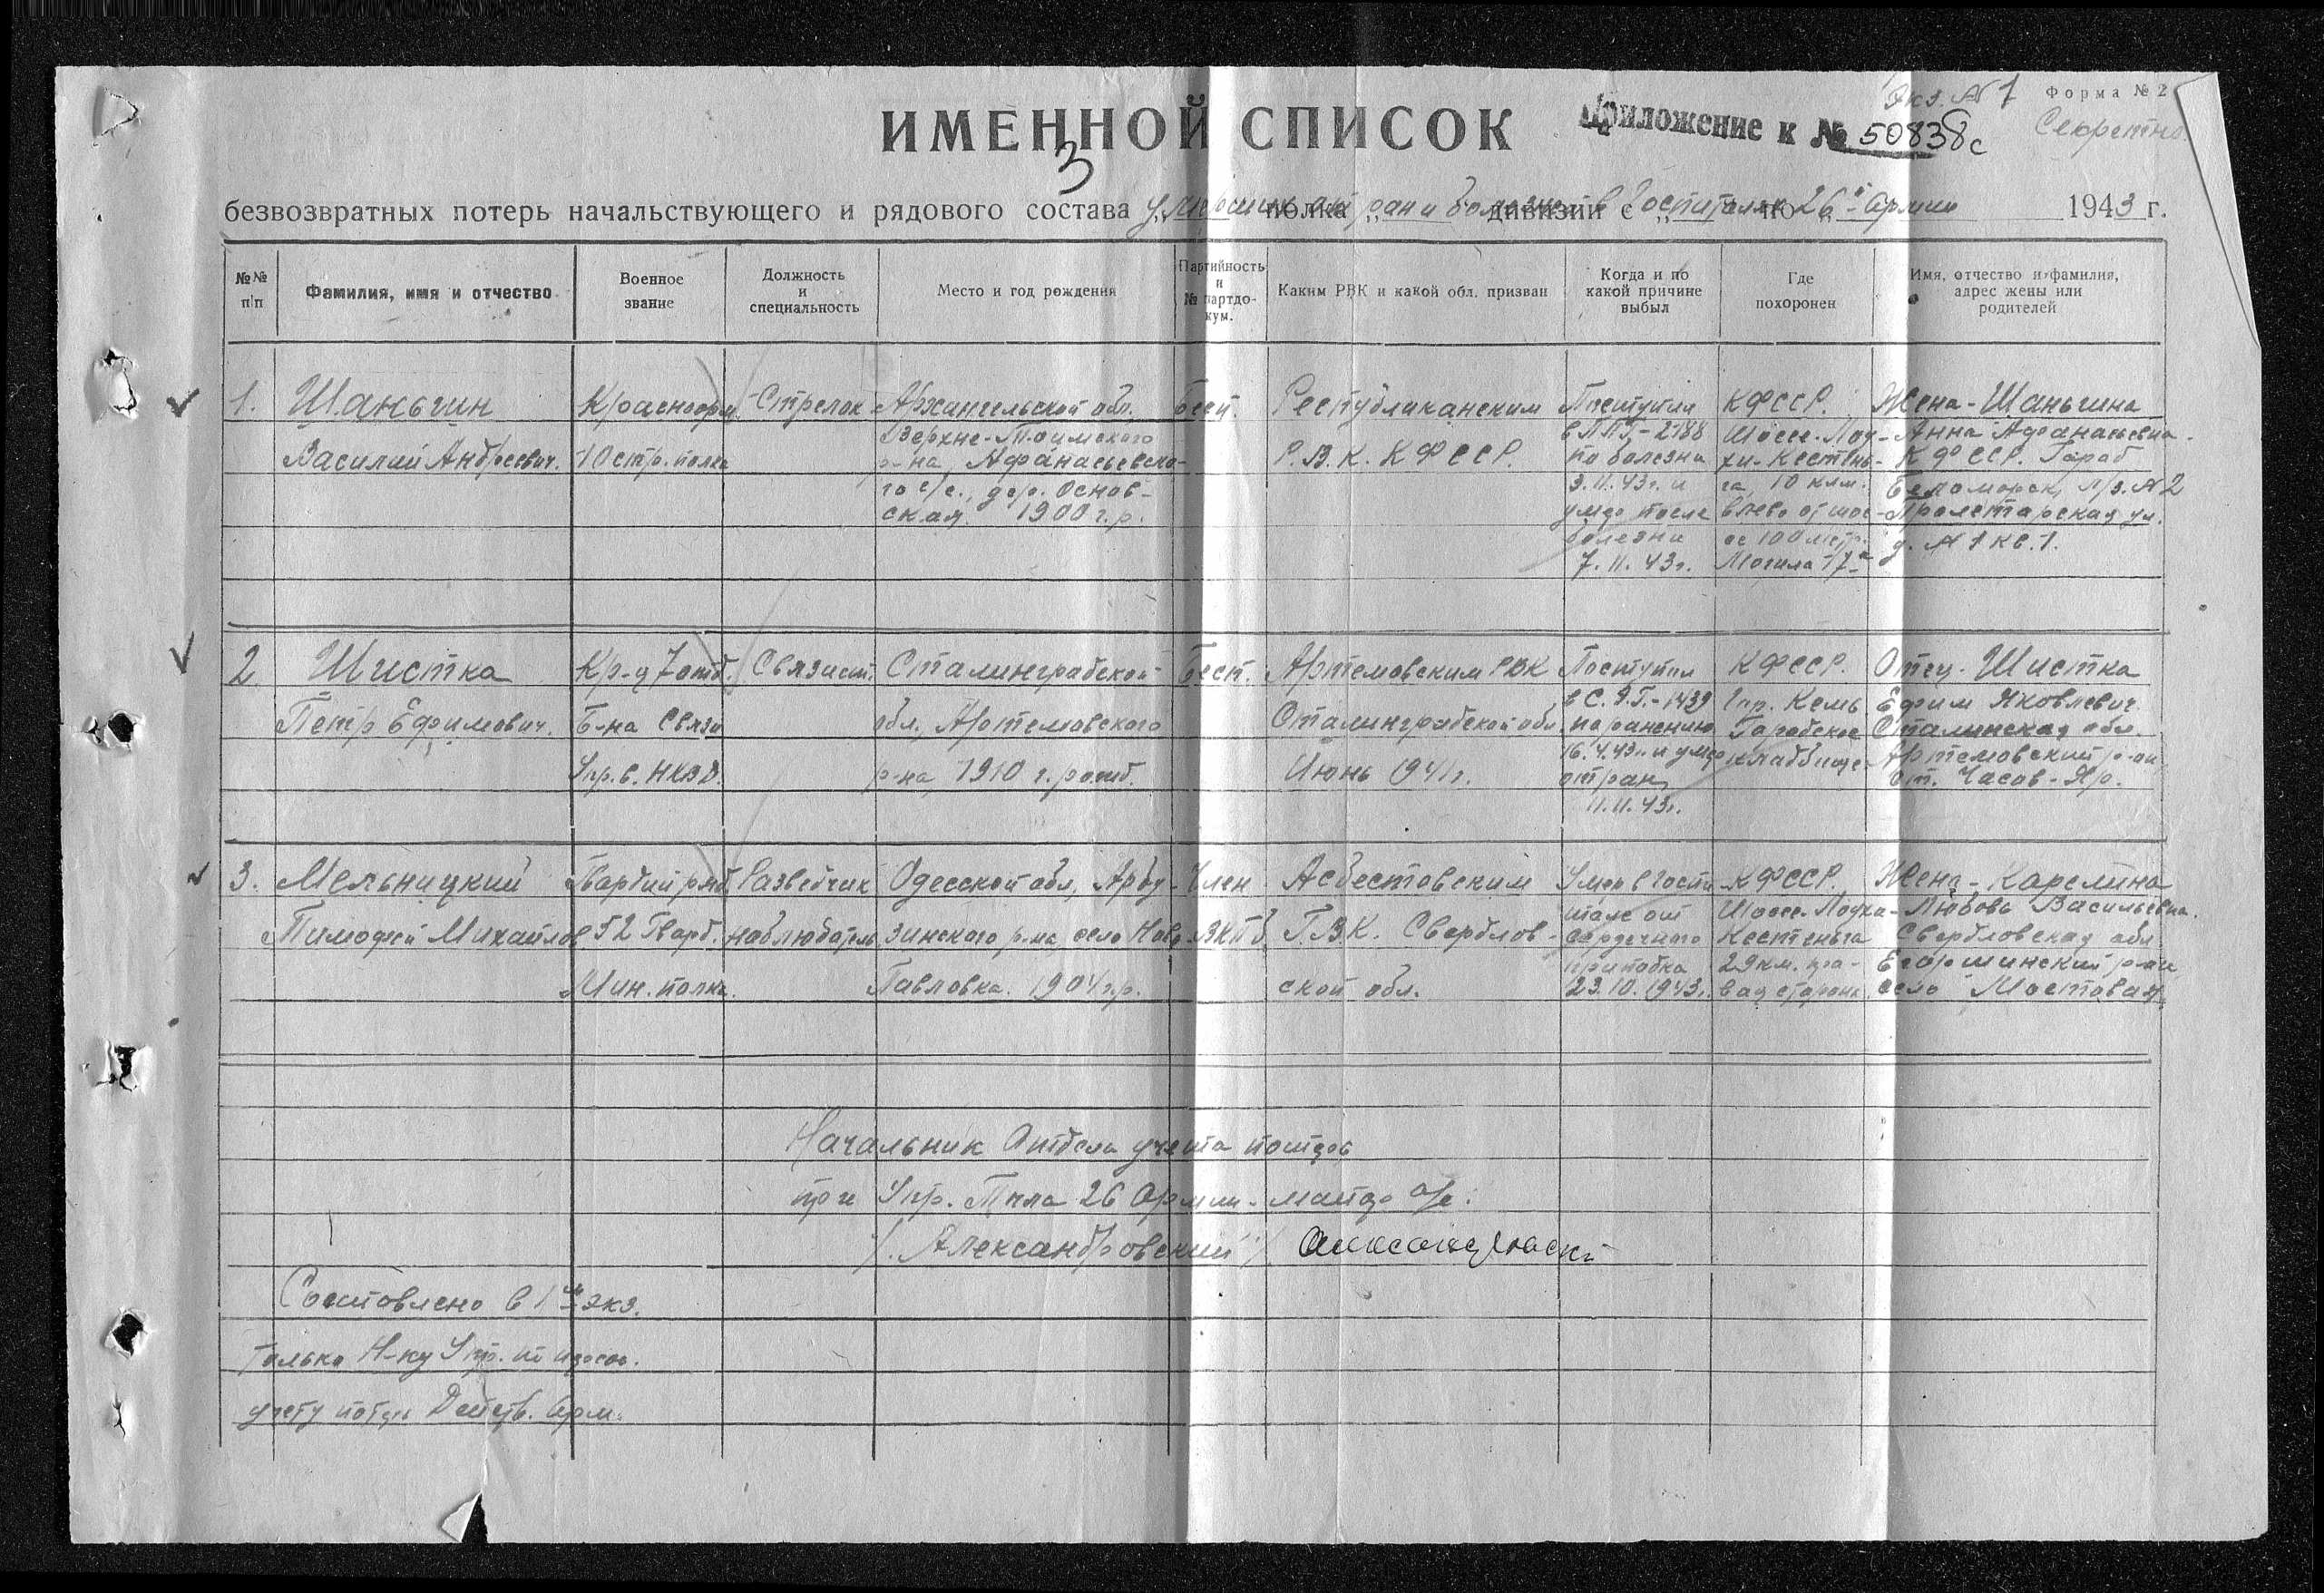 Экз. № 1
Форма № 2
Секретно.
ИМЕННОЙ СПИСОК
Приложение к № 50838с
3
безвозвратных потерь начальствующего и рядового состава умерших от ран и болезней в госпиталях 26й Армии 1943 г.
полка дивизии с по
№№ п/п
Фамилия, имя и отчество
Военное звание
Должность и специальность
Место и год рождения
Партийность и № партдокум.
Каким РВК и какой обл. призван
Когда и по какой причине выбыл
Где похоронен
Имя, отчество и фамилия, адрес жены или родителей
1.
Шаньгин
Василий Андреевич.
Красноарм.
10 стр. полка
Стрелок
Архангельской обл.
Верхне-Тоимского
р-на, Афанасьевско-
го с/с., дер. Основ-
ская. 1900 г.р.
Бесп.
Республиканским
Р.В.К. КФССР.
Поступил
в ППГ-2188
по болезни
3.11.43г. и
умер после
болезни
7.11.43г.
КФССР.
Шоссе-Лоу-
хи-Кестень-
га, 10 клм.
влево от шос-
се 100 метр.
Могила 17я
Жена-Шаньгина
Анна Афанасьевна.
КФССР. Город
Беломорск, п/о. № 2
Пролетарская ул.
д. № 1 кв. 1.
2
Шистка
Петр Ефимович.
Кр-ц 7 отд.
Б-на Связи
Упр. в. НКВД.
Связист.
Сталинградской
обл., Артемовского
р-на, 1910 г. рожд.
Бесп.
Артемовским РВК
Сталинградской обл.
Июнь 1941г.
Поступил
в С.Э.Г.-1439
по ранению
16.4.43г. и умер
от ран
11.11.43г.
КФССР.
Гор. Кемь
Городское
кладбище.
Отец-Шистка
Ефим Яковлевич.
Сталинская обл.
Артемовский р-он
ст. Часов-Яр.
3.
Мельницкий
Тимофей Михайлов
Гвардии ряд.
52 Гвард.
Мин. полка.
Разведчик
наблюдатель
Одесской обл., Арбу-
зинского р-на, село Ново-
Павловка. 1904г.р.
Член
ВКПб
Асбестовским
Г.В.К. Свердлов-
ской обл.
Умер в госпи-
тале от
сердечного
припадка
23.10.1943г.
КФССР.
Шоссе-Лоухи-
Кестеньга
29 км. пра-
вая сторона
Жена-Карелина
Любовь Васильевна.
Свердловская обл.
Егоршинский р-он
село Мостовая.
Начальник Отдела учета потерь
при Упр. Тыла 26 Армии-майор а/с:
/Александровский/
Составлено в 1м экз.
только Н-ку Упр. по персон.
учету потерь Действ. Арм.